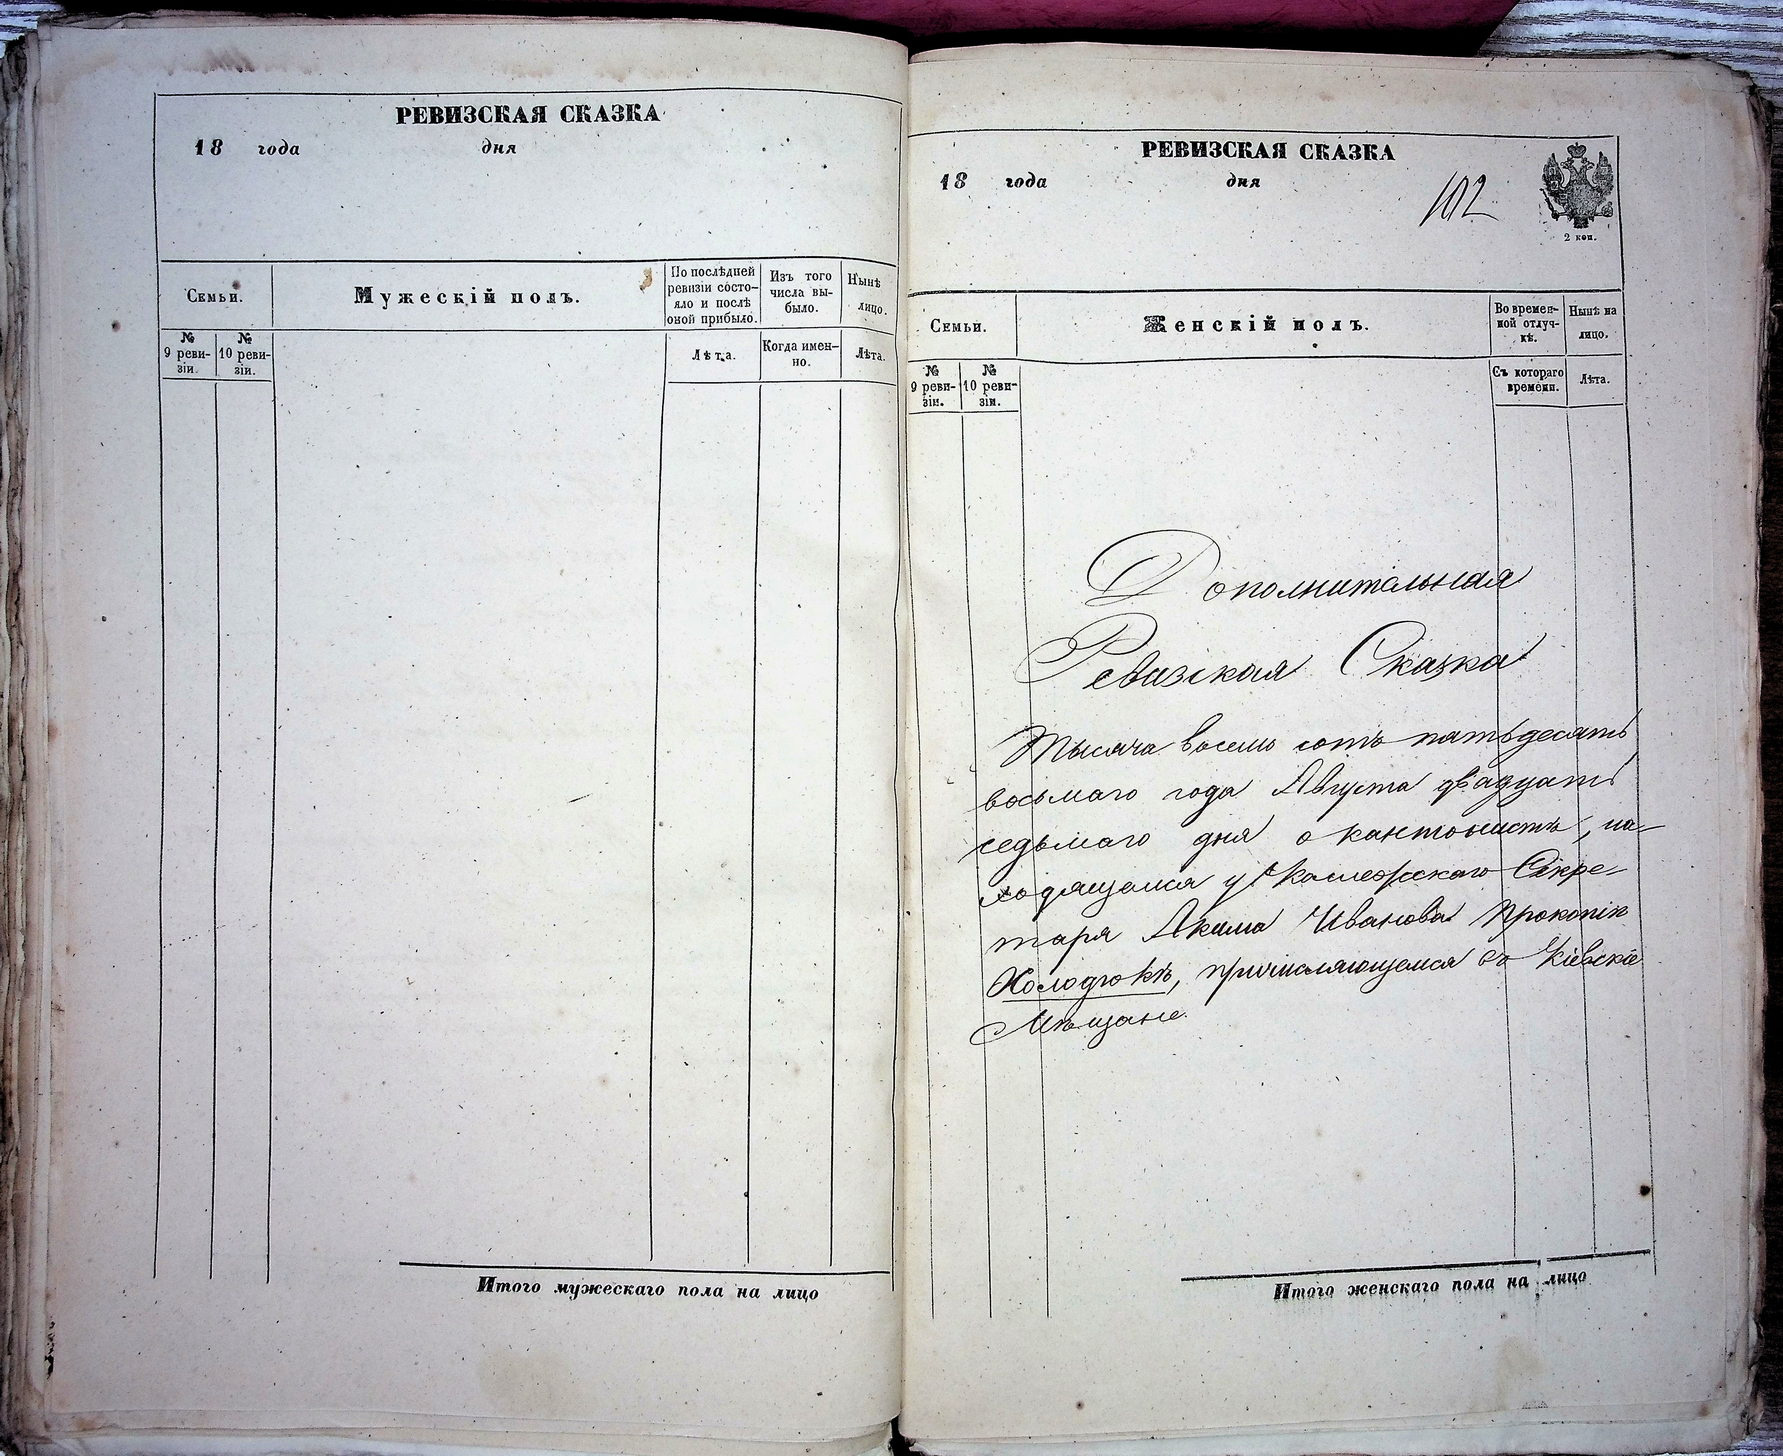 РЕВИЗСКАЯ СКАЗКА
18 года дня
Семьи.
Мужескій полъ.
По послѣдней
ревизіи состо-
яло и послѣ
оной прибыло.
Изъ того
числа вы-
было.
Нынѣ
лицо.
№
9 реви-
зіи.
№
10 реви-
зіи.
Лѣта.
Когда имен-
но.
Лѣта.
Итого мужескаго пола на лицо
РЕВИЗСКАЯ СКАЗКА
18 года дня
102
2 коп.
Семьи.
Женскій полъ.
Во времен-
ной отлуч-
кѣ.
Нынѣ на
лицо.
№
9 реви-
зіи.
№
10 реви-
зіи.
Съ котораго
времени.
Лѣта.
Дополнительная
Ревизская Сказка
Тысяча восемь сотъ пятьдесятъ
восьмаго года Августа двадцать
седьмаго дня о кантонистѣ, на-
ходящемся у Коллежскаго Секре-
таря Акима Иванова Прокопіѣ
Холодюкѣ, причисляющемся въ Кіевскіе
Мѣщане.
Итого женскаго пола на лицо